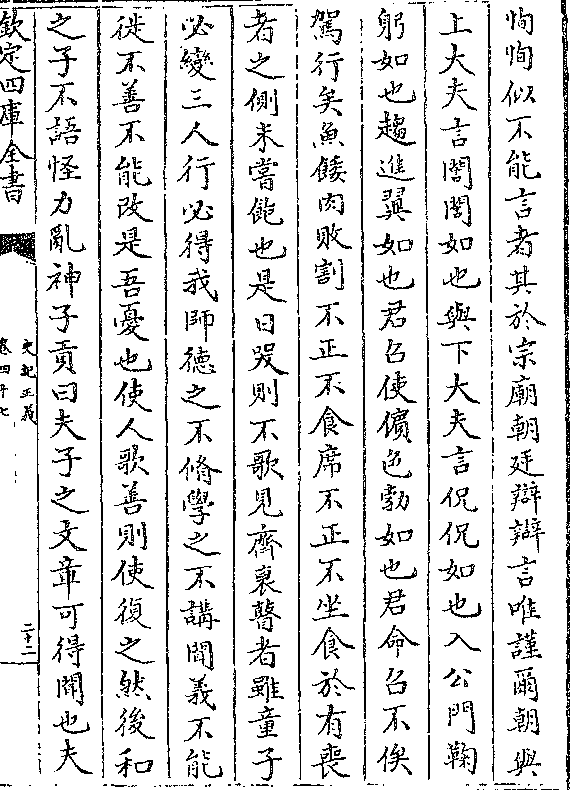 恂恂似不能言者其於宗廟朝廷辯辯言唯謹爾朝與
上大夫言誾誾如也與下大夫言侃侃如也入公門鞠
躬如也趨進翼如也君召使儐色勃如也君命召不俟
駕行矣魚餒肉敗割不正不食席不正不坐食於有喪
者之側未嘗飽也是日哭則不歌見齊衰瞽者雖童子
必變三人行必得我師德之不脩學之不講聞義不能
徙不善不能改是吾憂也使人歌善則使復之然後和
之子不語怪力亂神子貢曰夫子之文章可得聞也夫
欽定四庫全書
史記正義
卷四十七
二十二